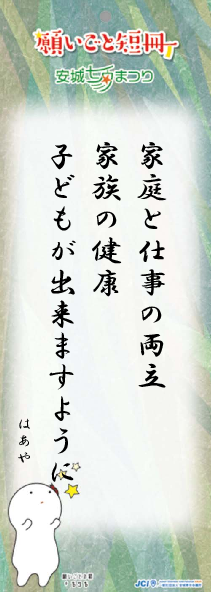 願いごと短冊
安城七夕まつり
家庭と仕事の両立
家族の健康
子どもが出来ますように
はあや
JCI